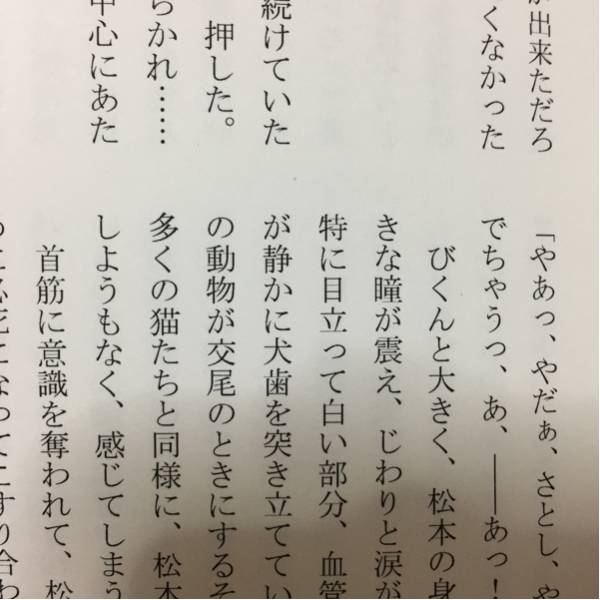 が出来ただろ
くなかった
続けていた
押した。
らかれ……
中心にあた
「やあっ、やだぁ、さとし、や
でちゃうっ、あ、――あっ！
びくんと大きく、松本の身
きな瞳が震え、じわりと涙が
特に目立って白い部分、血管
が静かに犬歯を突き立ててい
の動物が交尾のときにするそ
多くの猫たちと同様に、松本
しようもなく、感じてしまう
首筋に意識を奪われて、松
に必死になってこすり合わ